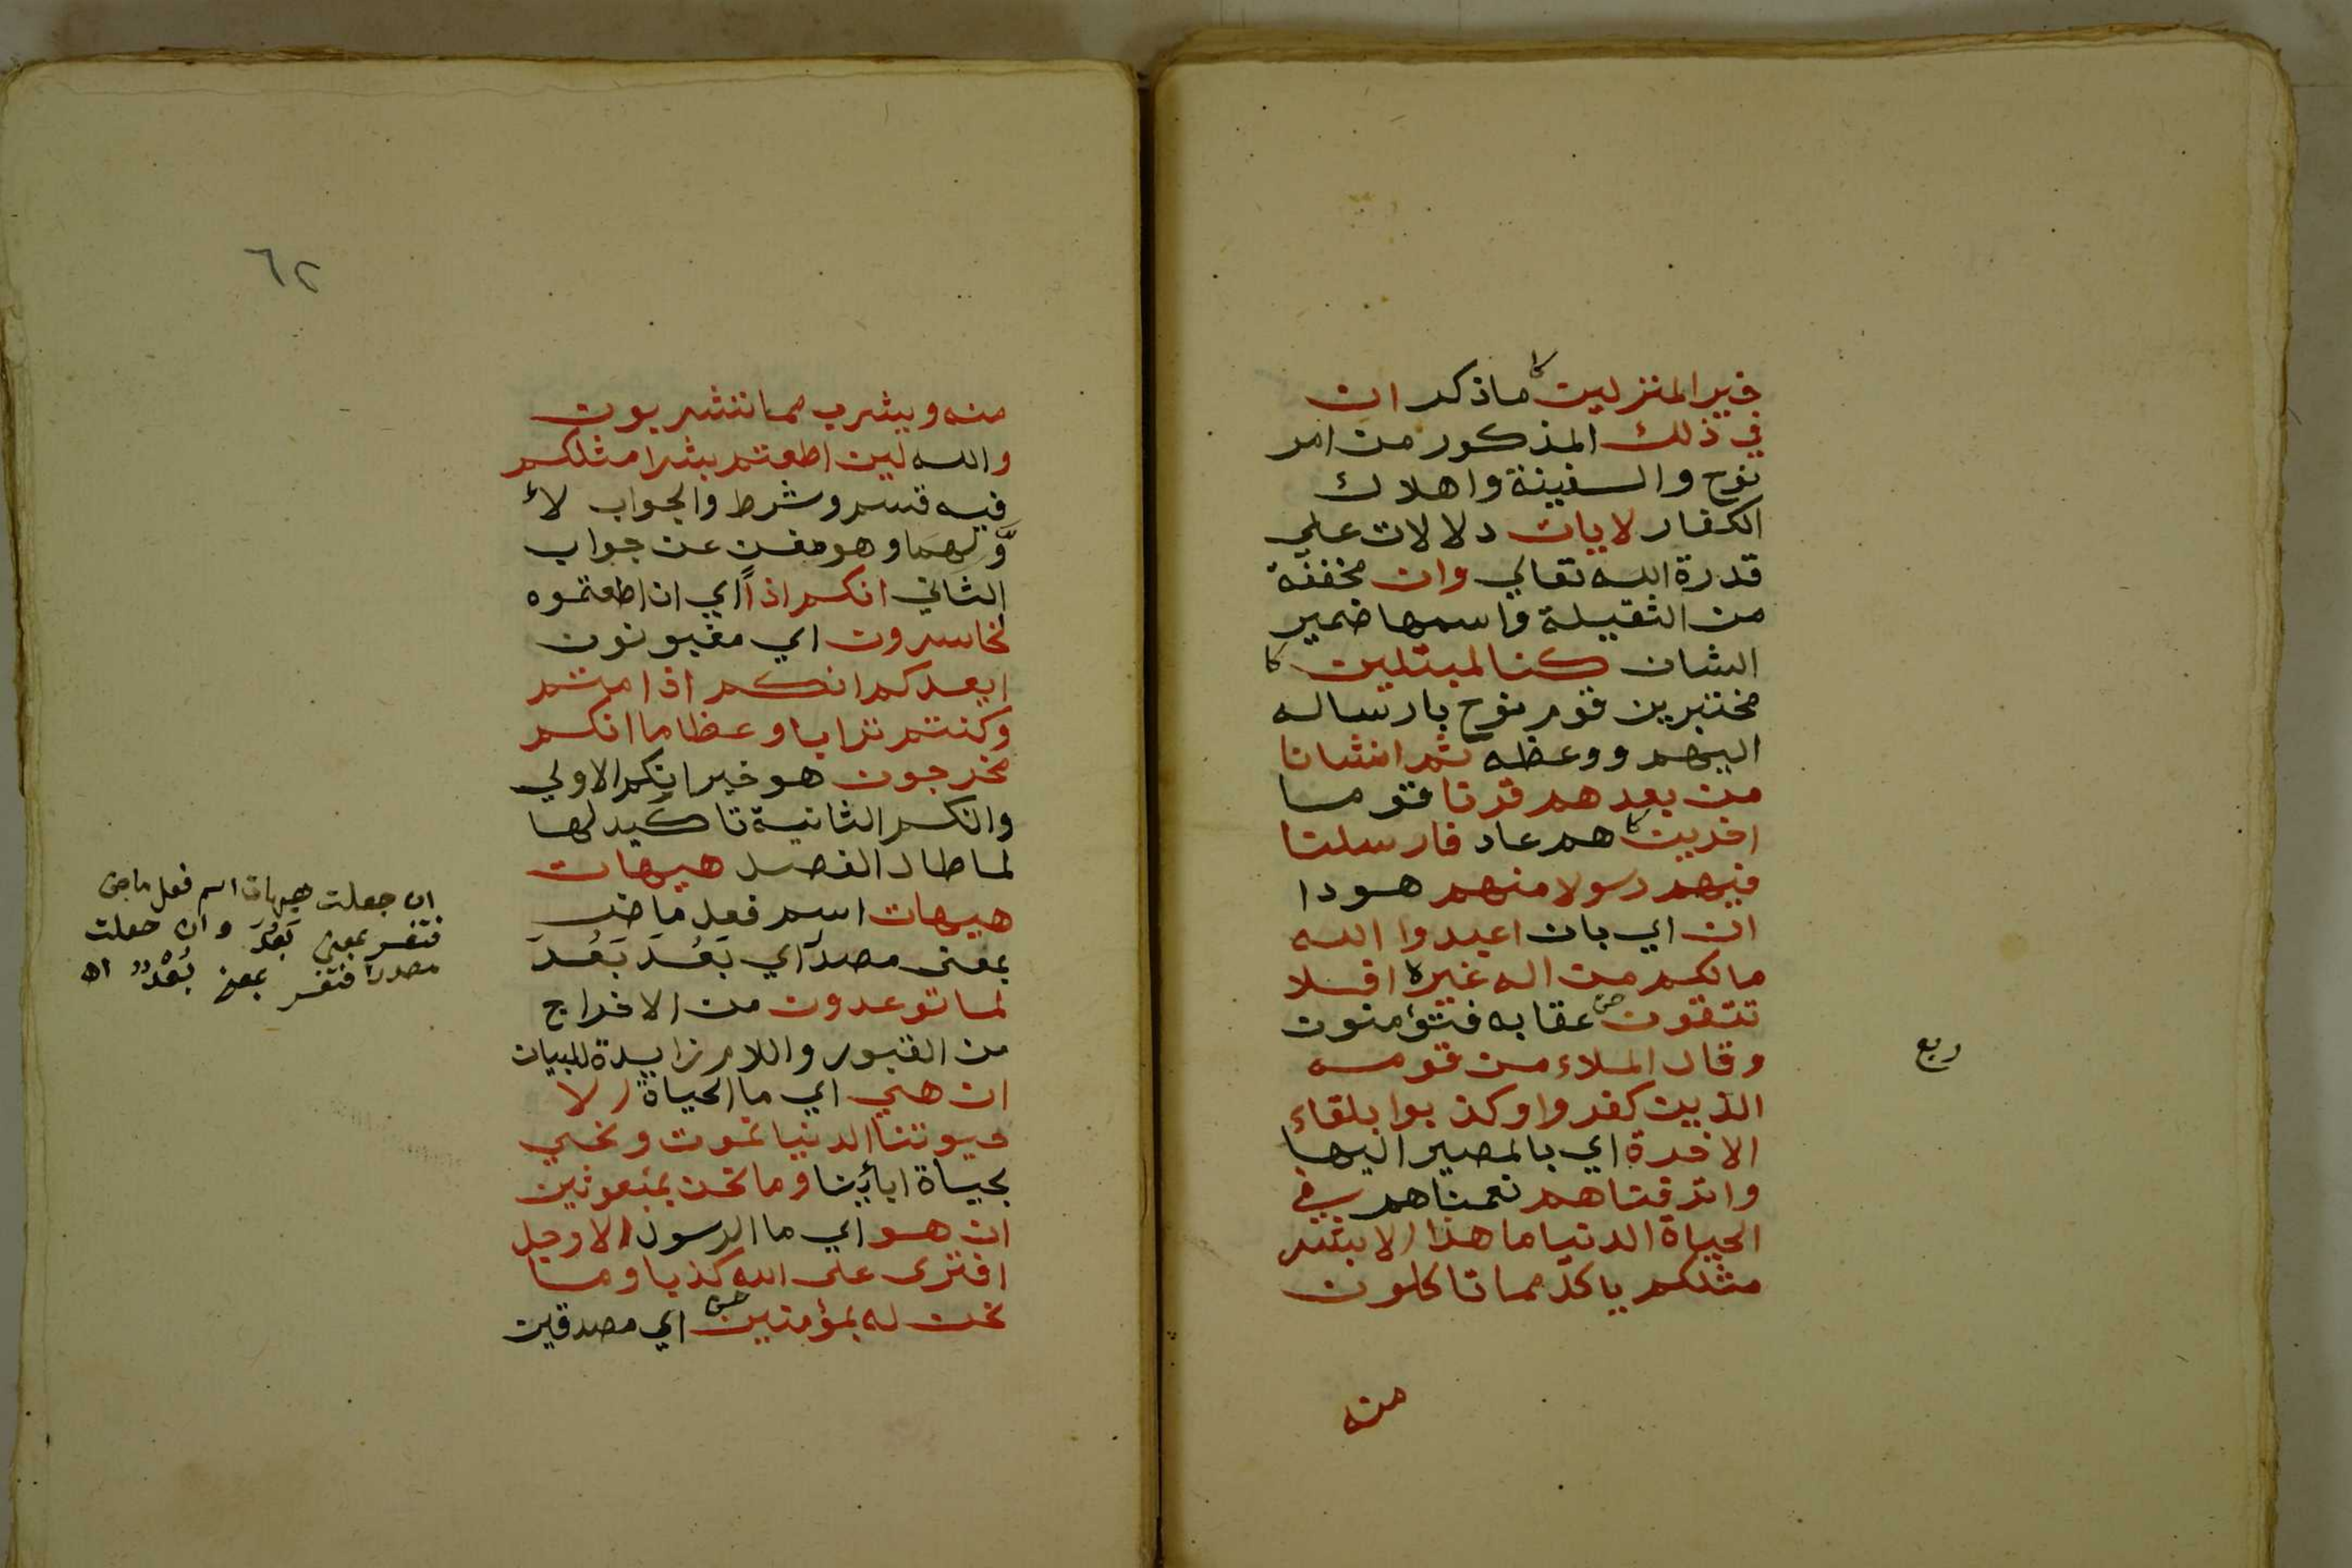 خير المنزلين كا ماذكر ان
في ذلك المذكور من امر
نوح والسفينة واهلاك
الكفار لايات دلالات علي
قدرة الله تعالي وان مخففة
من الثقيلة واسمها ضمير
الشان كنا لمبتلين كا
مختبرين قوم نوح بارساله
اليهم ووعظه ثم انشانا
من بعدهم قرنا قوما
اخرين كا هم عاد فارسلنا
فيهم رسولا منهم هودا
ان اي بان اعبدوا الله
مالكم من اله غيره افلا
تتقون عقابه فتؤمنون
وقال الملاء من قومه
الذين كفروا وكذبوا بلقاء
الاخرة اي بالمصير اليها
واترفناهم نعمناهم في
الحياة الدنيا ما هذا الا بشر
مثلكم ياكل مما تاكلون
منه
ربع
٦٢
منه ويشرب مما تشربون
والله لين اطعتم بشرا مثلكم
فيه قسم وشرط والجواب لاٴ
وَّلهما وهو مغن عن جواب
الثاني انكم اذاً اي ان اطعتموه
لخاسرون اي مغبونون
ايعدكم انكم اذا متم
وكنتم ترابا وعظاما انكم
مخرجون هو خبر انكم الاولي
وانكم الثانية تاكيد لها
لما طال الفصل هيهات
هيهات اسم فعل ماض
بمعنى مصدر اي بَعُدَ بَعُدَ
لما توعدون من الاخراج
من القبور واللام زايدة للبيان
ان هي اي ما الحياة الا
حيوتنا الدنيا نموت ونحي
بحياة ابأينا وما نحن بمبعوثين
ان هو اي ما الرسول الا رجل
افترى على الله كذبا وما
نحن له بمؤمنين اي مصدقين
ان جعلت هيهات اسم فعل ماض
فتفسر بمعنى بَعُدَ وان جعلت
مصدرا فتفسر بمعنى بُعْدٌ اه